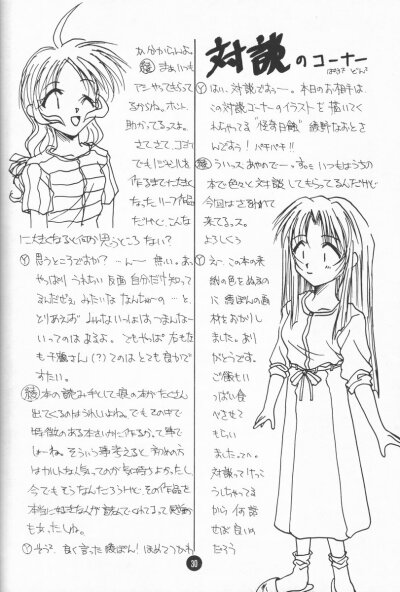 対談のコーナー
Ⓨはい、対談でぁっー。本日のお相手は、
この対談コーナーのイラストを描いてく
れちゃってる"怪奇日蝕"綾野なおとさ
んですぅ! パチパチ!!
綾 ういっスあやのでーす。いつもはうちの
本で色々と対談してもらってるんだけど
今回はさそわれて
来てるっス。
よろしくう
Ⓨえー、この本の表
紙の色をぬるの
に綾ぽんの画
材をおかりし
ました。あり
がとうです。
ご飯もい
っぱい食
べさせて
もらい
ました
対談ってけっこ
うしちゃってる
から何話
せば良いの
だろう
か分からんよ。
綾 まぁ、いつも
アシやってもらって
るからね。ホント、
助かってるっスよ。
さてさて、ココま
でも
作るまで大きく
なったリーフ作品
だけど、こんな
に大きくなると何か思うところない?
Ⓨ思うところですか?…ん〜無い。あ、
やっぱりうれしい反面自分だけ知って
るんだぜぇみたいななんちゅーの…と、
とりあえずみんないっしょはつまんなー
いってのはあるよ。でもやっぱ右も左
も千鶴さん(?)てのはとても豊かで
すたい。
綾 本の読み手として痕の本がたくさん
出てくるのはうれしいよね。でもその中で
特徴のある本をいかに作るかって事で
しょーね。そういう事考えると初めの方
気持ちよかったし、
今でもそうなんだろうけど、その作品を
本当に好きな人が読んでくれてるって感動
も
Ⓨそう?良く言った綾ぽん!ほめてつかわ
30